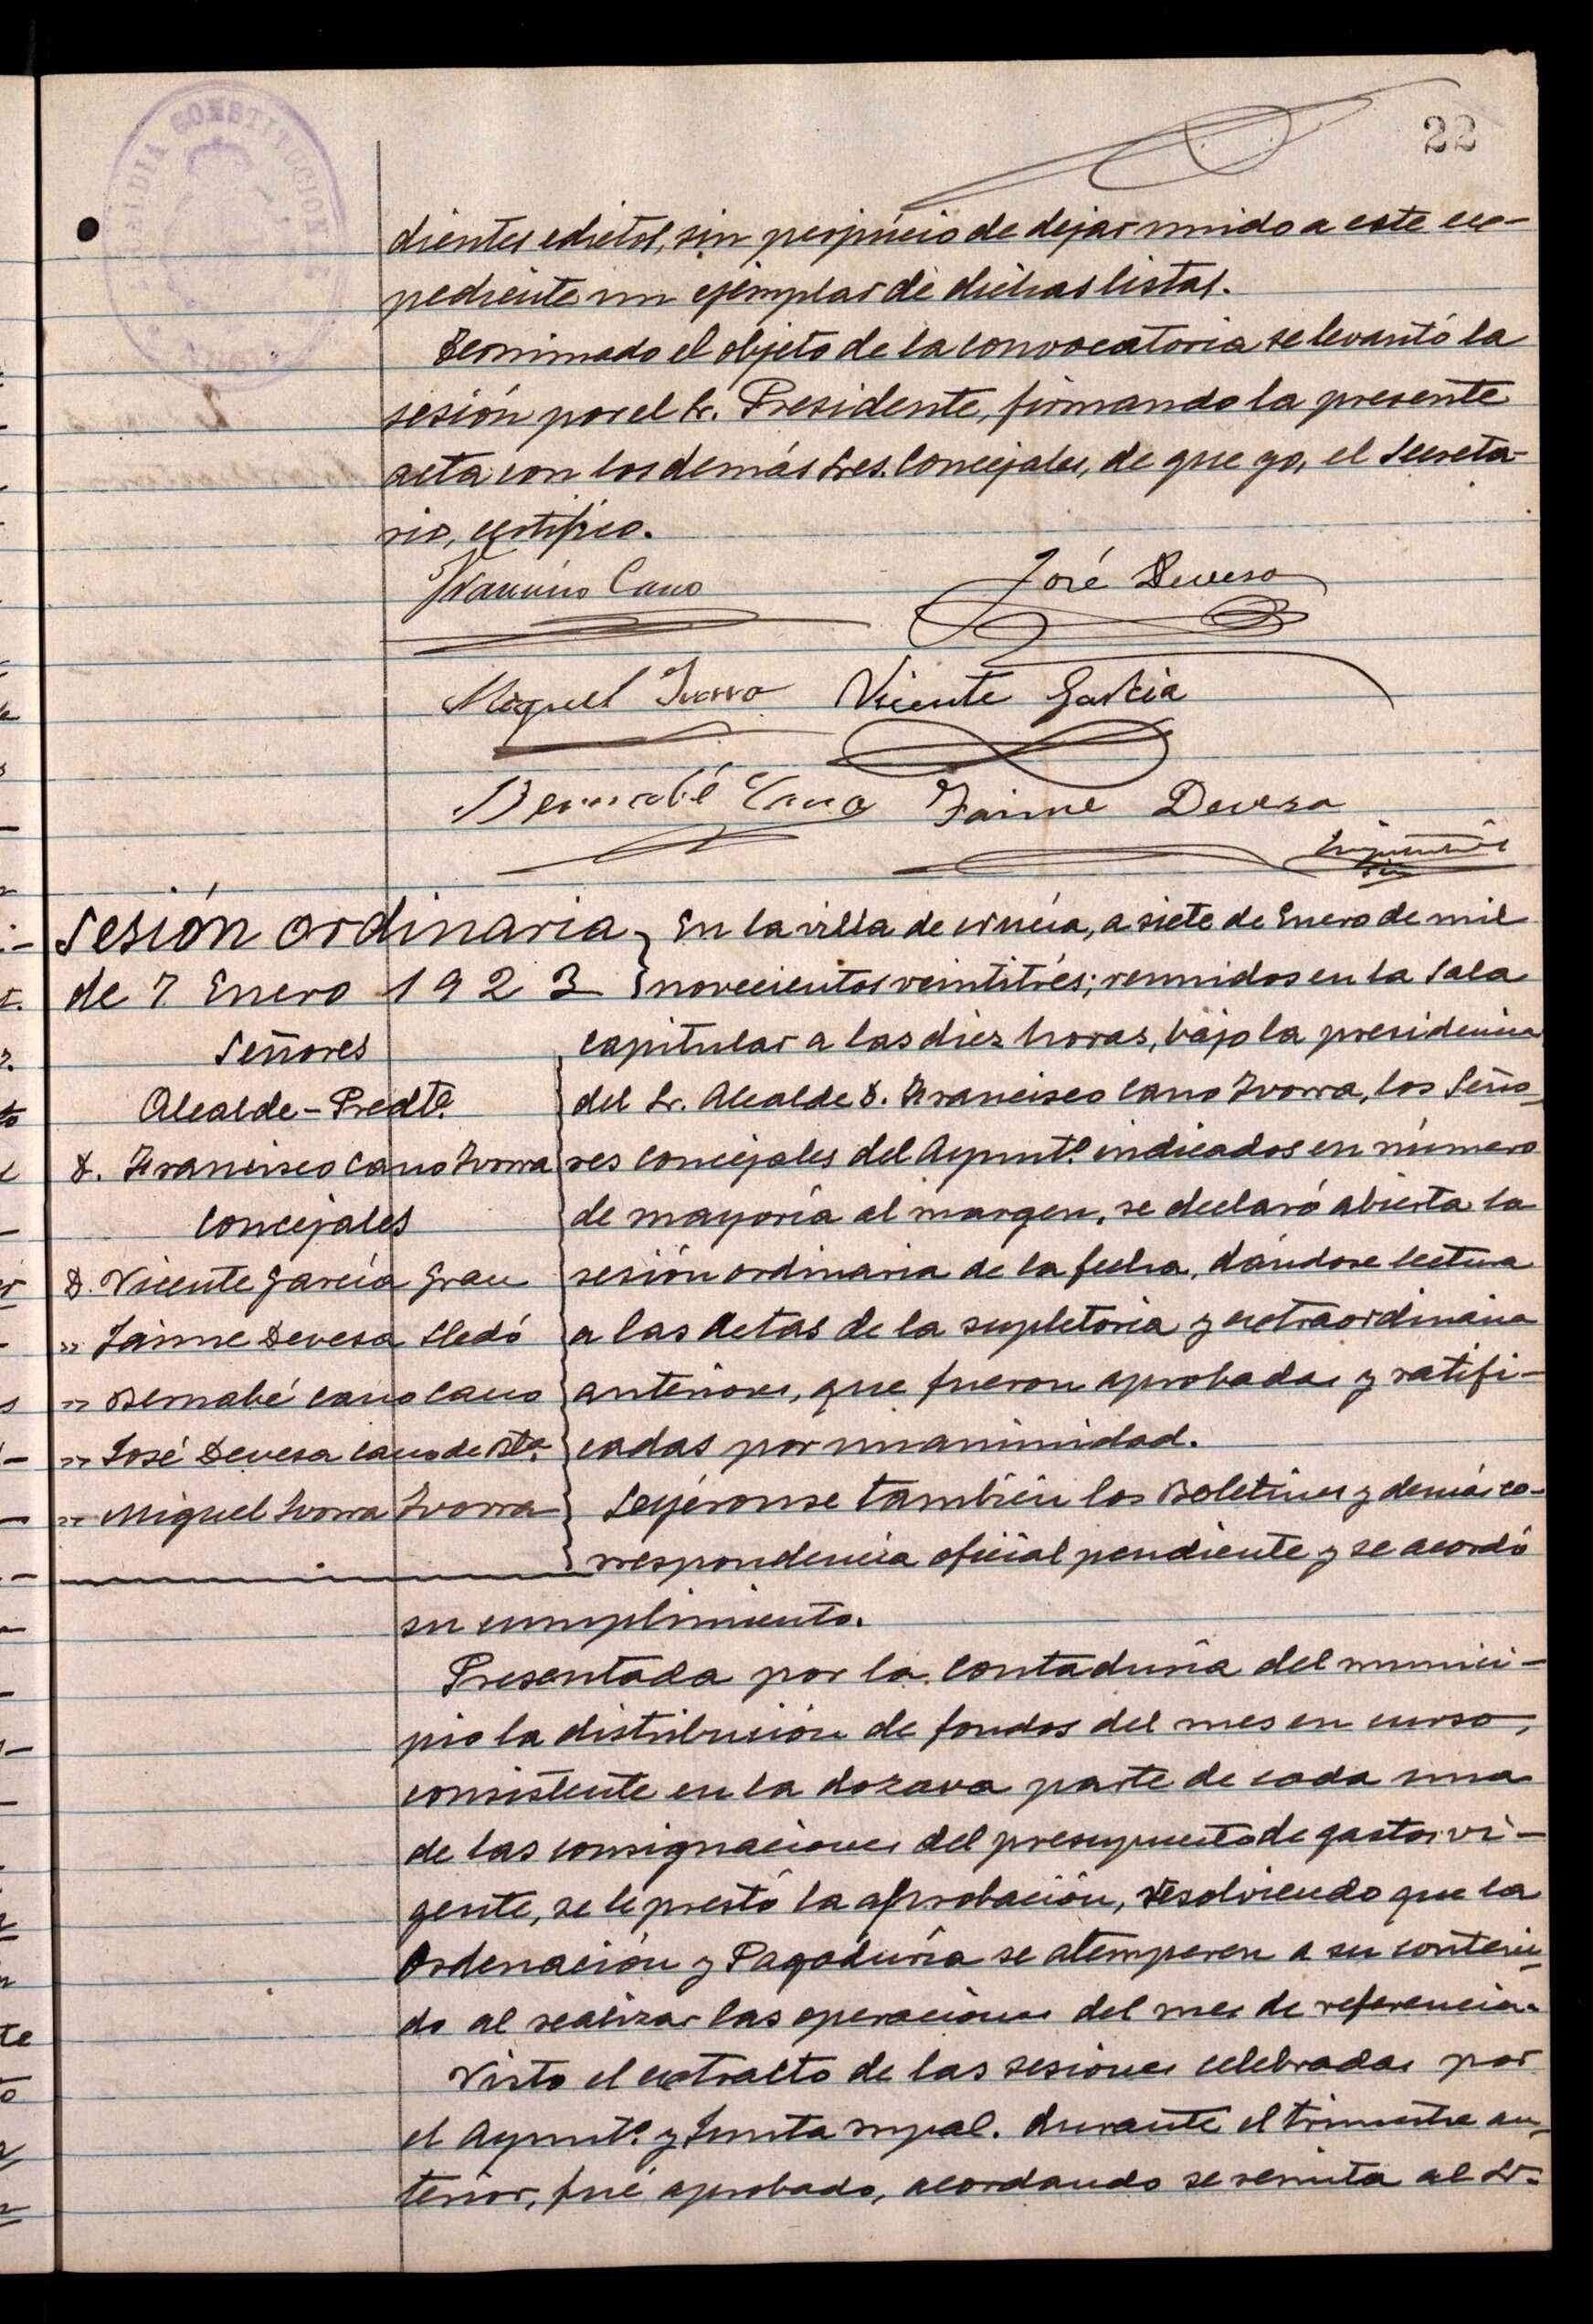 22
ALCALDIA CONSTITUCIONAL
dientes edictos, sin perjuicio de dejar unido a este ex-
pediente un ejemplar de dichas listas.
Terminado el objeto de la convocatoria se levantó la
sesión por el Sr. Presidente, firmando la presente
acta con los demás Sres. Concejales, de que yo, el Secreta-
rio, certifico.
Francisco Cano José Devesa
Miguel Ivorra Vicente García
Bernabé Cano Jaime Devesa
Sesión ordinaria
de 7 Enero 1923
Señores
Alcalde-Predte.
D. Francisco Cano Ivorra
Concejales
D. Vicente García Grau
" Jaime Devesa Lledó
" Bernabé Cano Cano
" José Devesa Cano de Bta.
" Miguel Ivorra Ivorra
En la villa de Nucia, a siete de Enero de mil
novecientos veintitrés; reunidos en la Sala
capitular a las diez horas, bajo la presidencia
del Sr. Alcalde D. Francisco Cano Ivorra, los Seño-
res concejales del Ayuntº. indicados en número
de mayoría al margen, se declaró abierta la
sesión ordinaria de la fecha, dándose lectura
a las Actas de la supletoria y extraordinaria
anteriores, que fueron aprobadas y ratifi-
cadas por unanimidad.
Leyéronse también los Boletines y demás co-
rrespondencia oficial pendiente y se acordó
su cumplimiento.
Presentada por la Contaduría del munici-
pio la distribución de fondos del mes en curso,
consistente en la dozava parte de cada una
de las consignaciones del presupuesto de gastos vi-
gente, se le prestó la aprobación, resolviendo que la
Ordenación y Pagaduría se atemperen a su conteni-
do al realizar las operaciones del mes de referencia.
Visto el extracto de las sesiones celebradas por
el Ayuntº. y Junta mpal. durante el trimestre an-
terior, fué aprobado, acordando se remita al Sr.